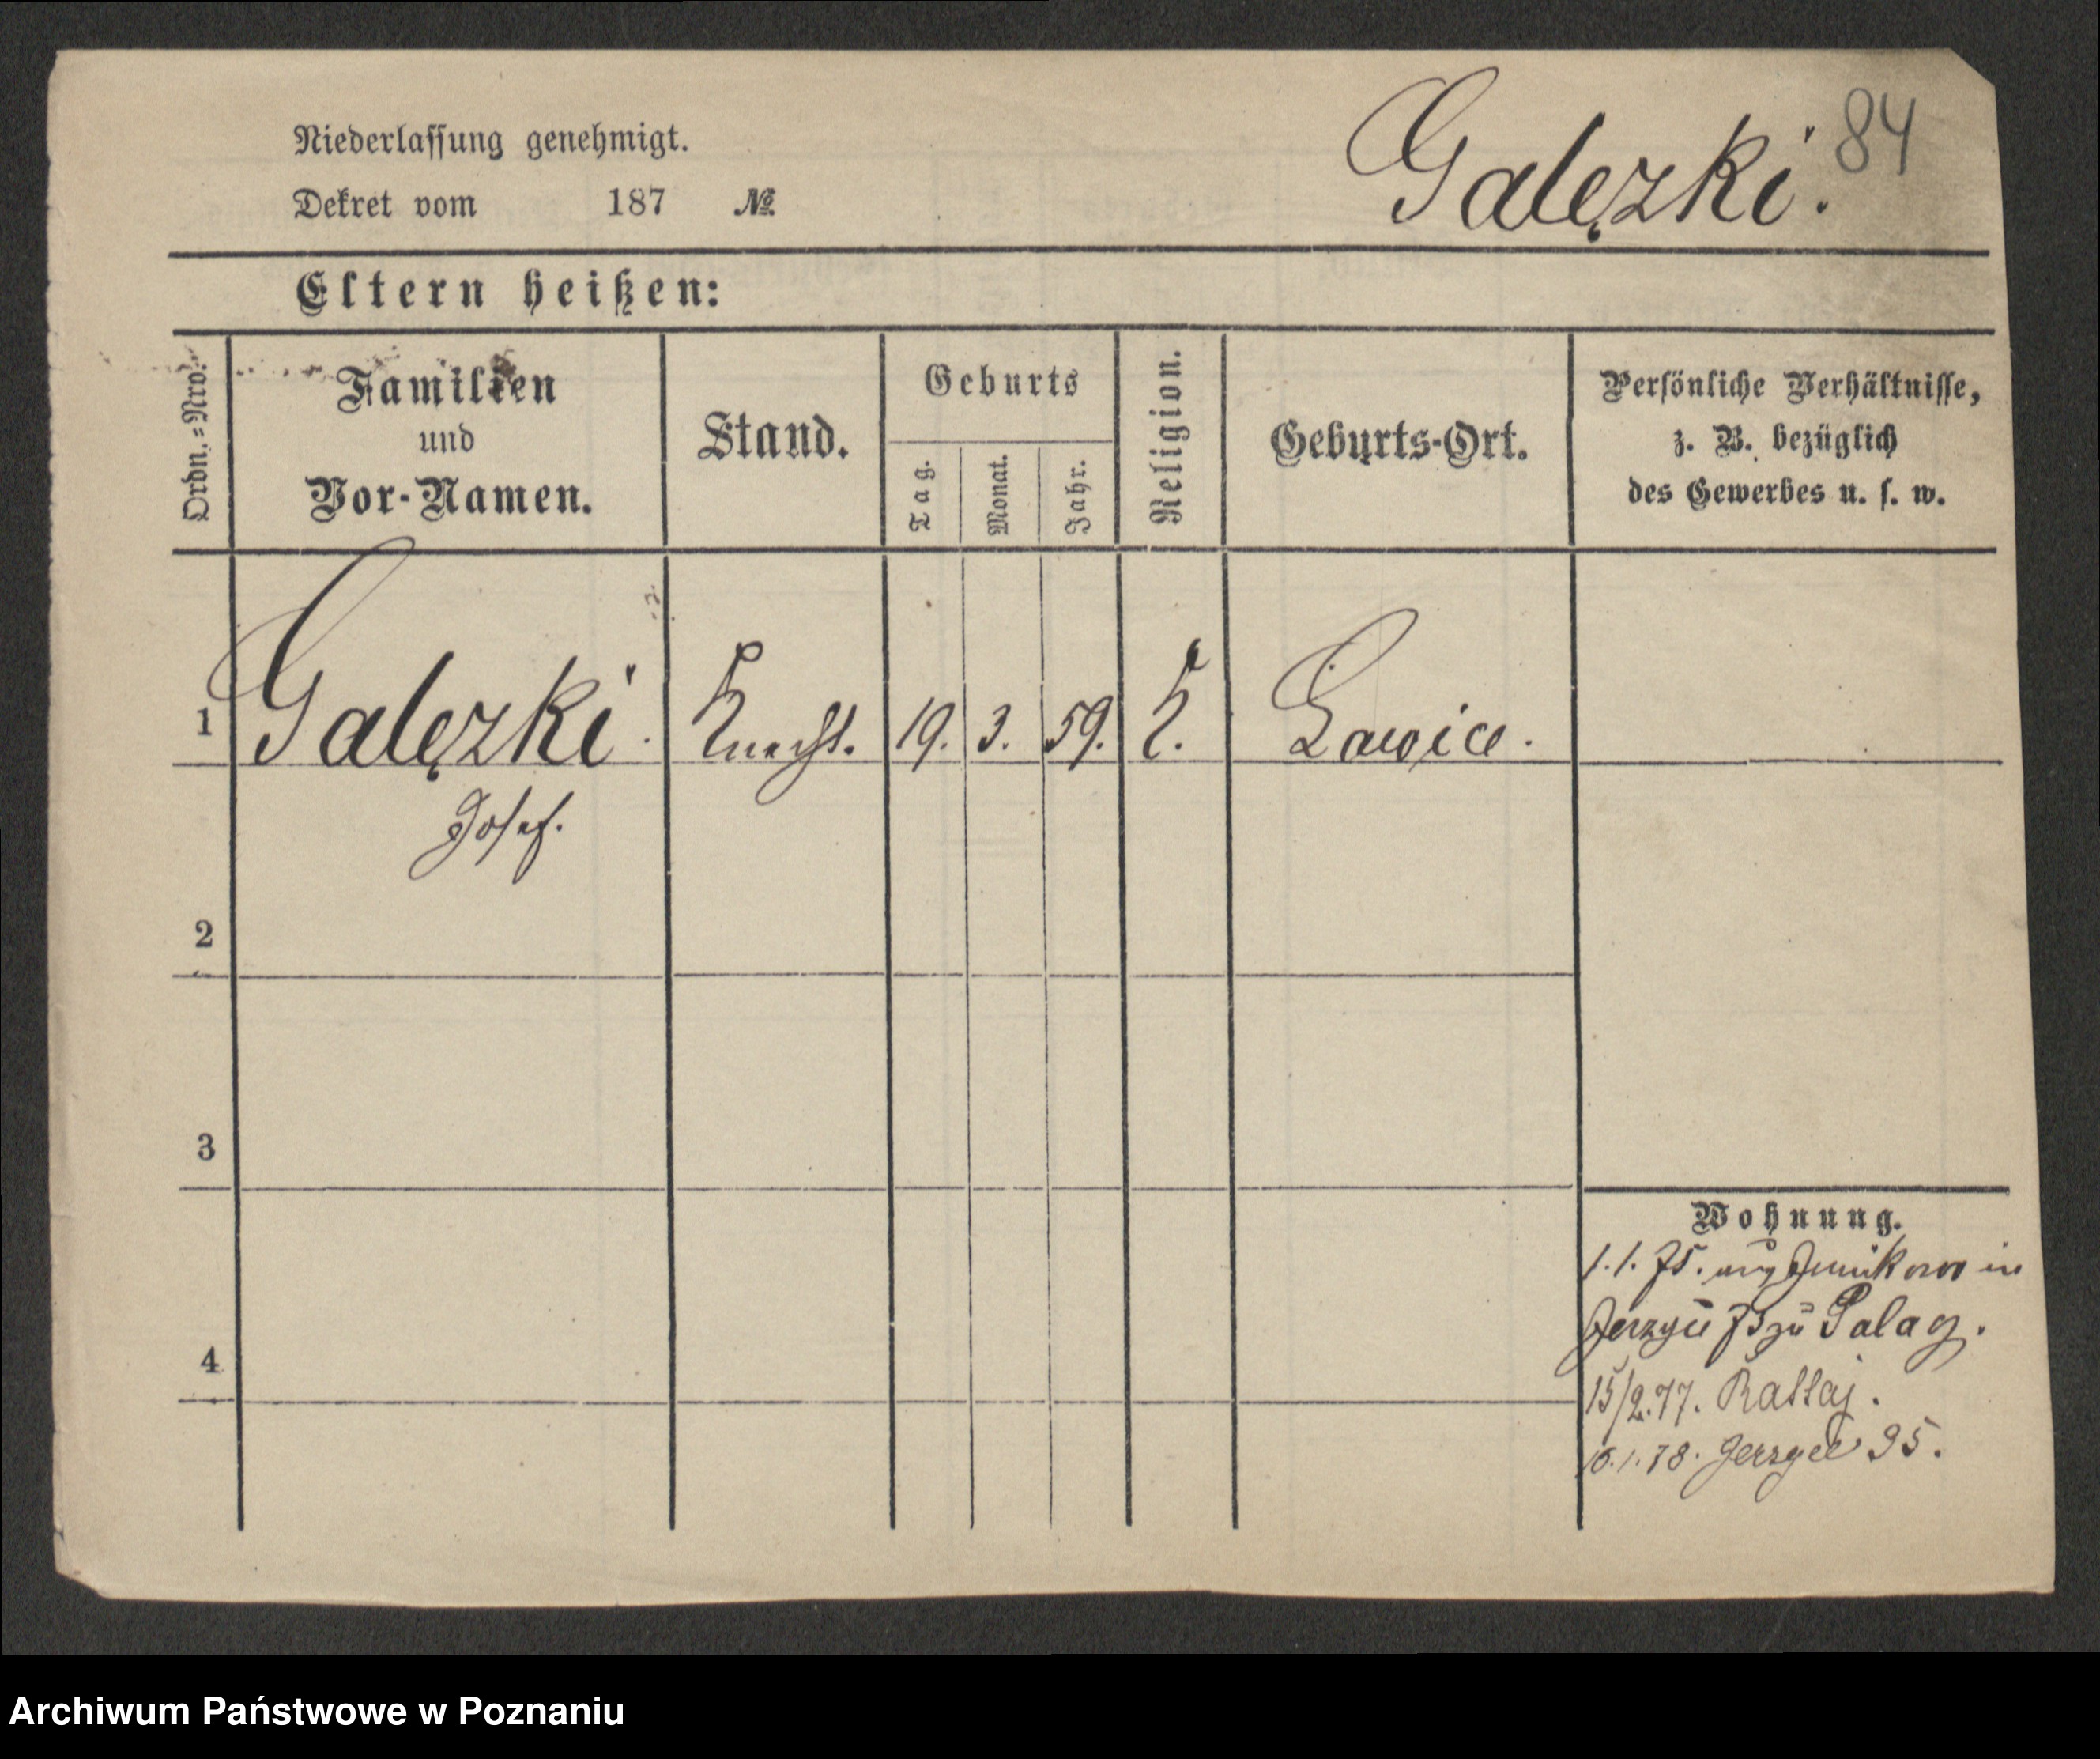 Niederlassung genehmigt.
Dekret vom 187 №
Galęzki. 84
Eltern heißen:
Ordn.=Nro.
Familien
und
Vor-Namen.
Stand.
Geburts
Tag.
Monat.
Jahr.
Religion.
Geburts-Ort.
Persönliche Verhältnisse,
z. B. bezüglich
des Gewerbes u. s. w.
1 Galęzki. Knecht. 19. 3. 59. K. Lawice.
Josef.
2
3
4
Wohnung.
1.1. 75. aus Junikowo in
Jerzyce zu
15/2.77. Rattaj.
1.78. Jerzyce 95.
Archiwum Państwowe w Poznaniu